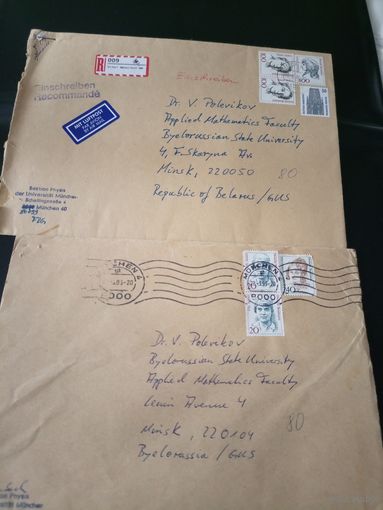 R
009
Einschreiben
Recommandé
MIT LUFTPOST
PAR AVION
BY AIR MAIL
Einschreiben
100
100
Dr. V. Polevikov
Applied Mathematics Faculty
Byelorussian State University
4, F. Skoryna Av.
Minsk, 220050
80
Republic of Belarus / GUS
Sektion Physik
der Universität München
Schellingstraße 4
München 40
MÜNCHEN
8000
MÜNCHEN
8000
20
20
Dr. V. Polevikov
Byelorussian State University
Applied Mathematics Faculty
Lenin Avenue 4
Minsk, 220104
80
Byelorussia / GUS